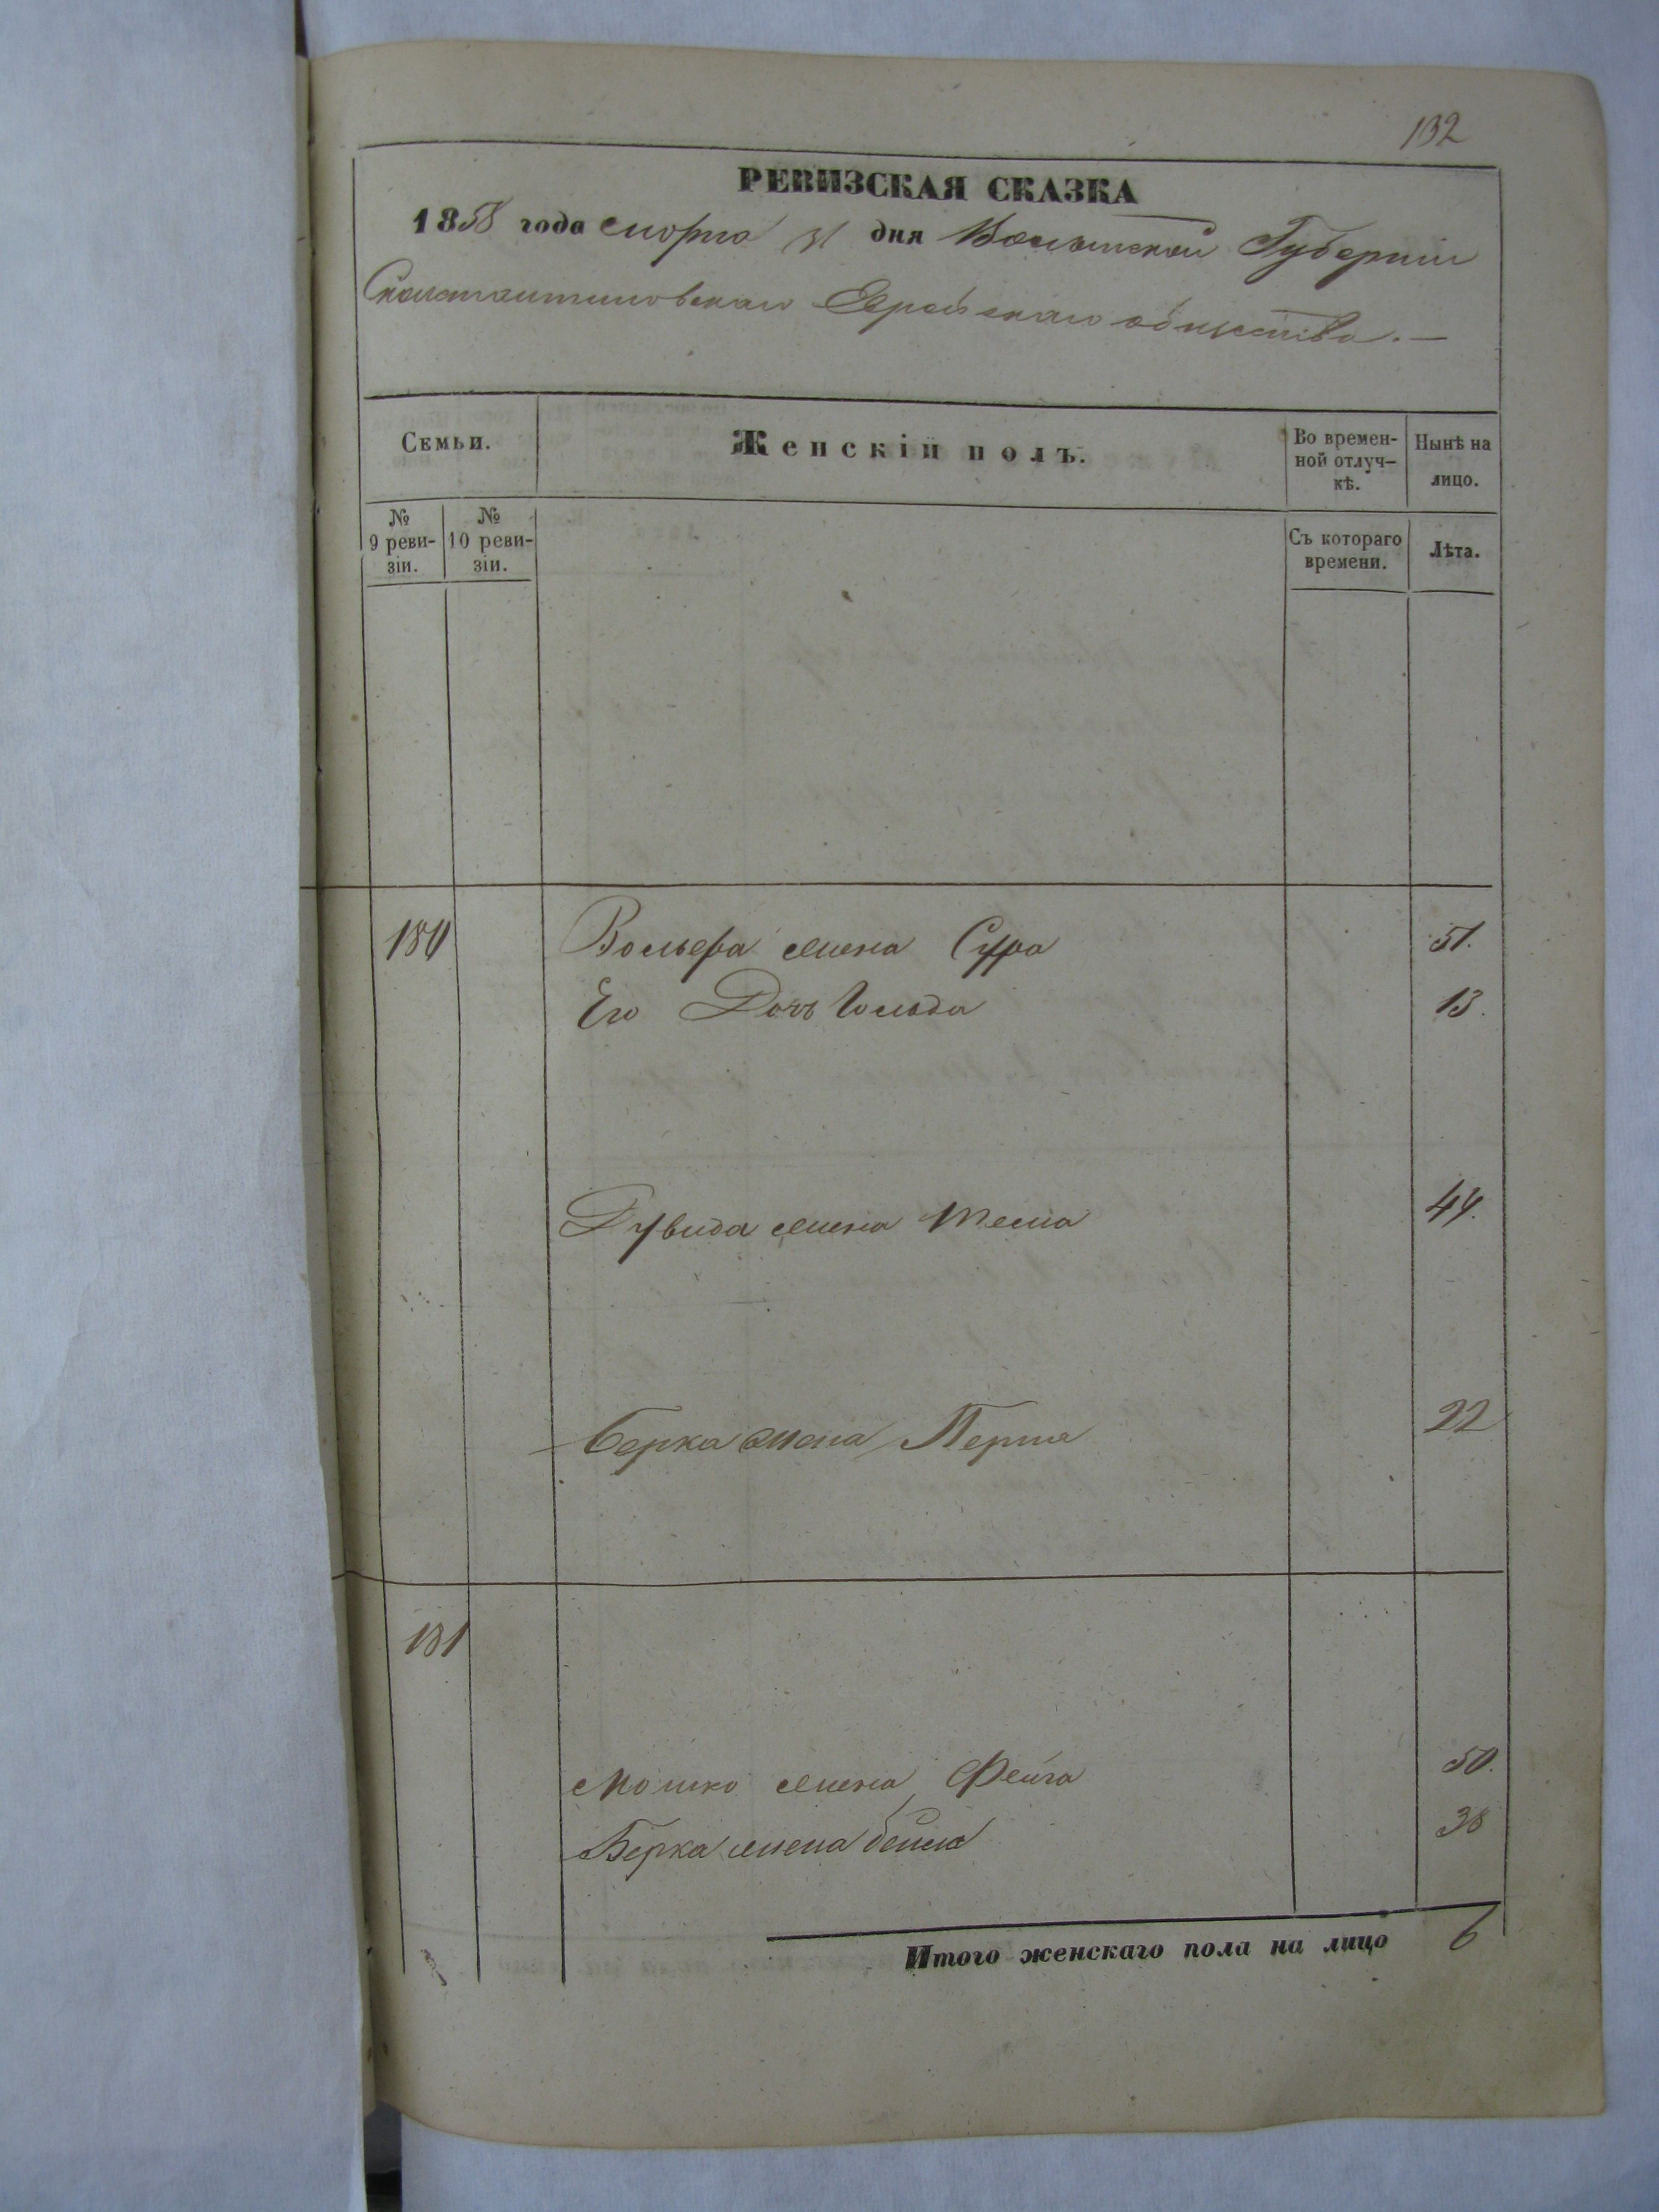 132
РЕВИЗСКАЯ СКАЗКА
1858 года марта 31 дня Волынской Губернии
Сконстантиновскаго Еврейскаго общества.—
Семьи.
Женскій полъ.
Во времен-
ной отлуч-
кѣ.
Нынѣ на
лицо.
№
9 реви-
зіи.
№
10 реви-
зіи.
Съ котораго
времени.
Лѣта.
180 Вольфа жена Сура 51.
Его Дочь Гольда 13.
Дувида жена 44.
Берка жена Перля 22
181
Мошко жена Фейга 50.
Берка жена Бейла 38
Итого женскаго пола на лицо 6